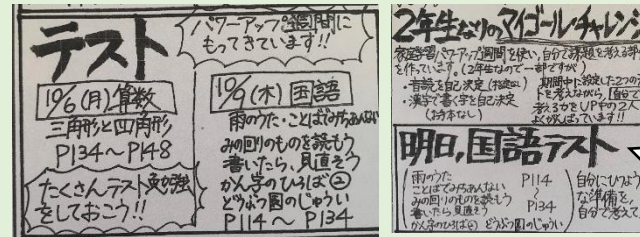 テスト
パワーアップ週間に
もってきています!!
10/6(月)算数
三角形と四角形
P134～P148
たくさんテスト勉強
をしておこう!!
10/9(木)国語
雨のうた・ことばでみちあんない
みの回りのものを読もう
書いたら、見直そう
かん字のひろば②
どうぶつ園のじゅうい
P114～P134
2年生なりのマイゴール・チャレンジ
家庭学習パワーアップ週間を使い、自分で課題を考える
を作っています。(2年生なので一部ですが)
・音読を自己決定
・漢字で書く字を自己決定
期間中に設定した2つの
トを考えながら、「自分で
考える力をUP中の2人
よくがんばっています!!
明日,国語テスト
雨のうた
ことばでみちあんない
みの回りのものを読もう
書いたら見直そう
かん字のひろば② どうぶつ園のじゅうい
P114
～
P134
自分にひつよう
な準備を、
自分で考えて